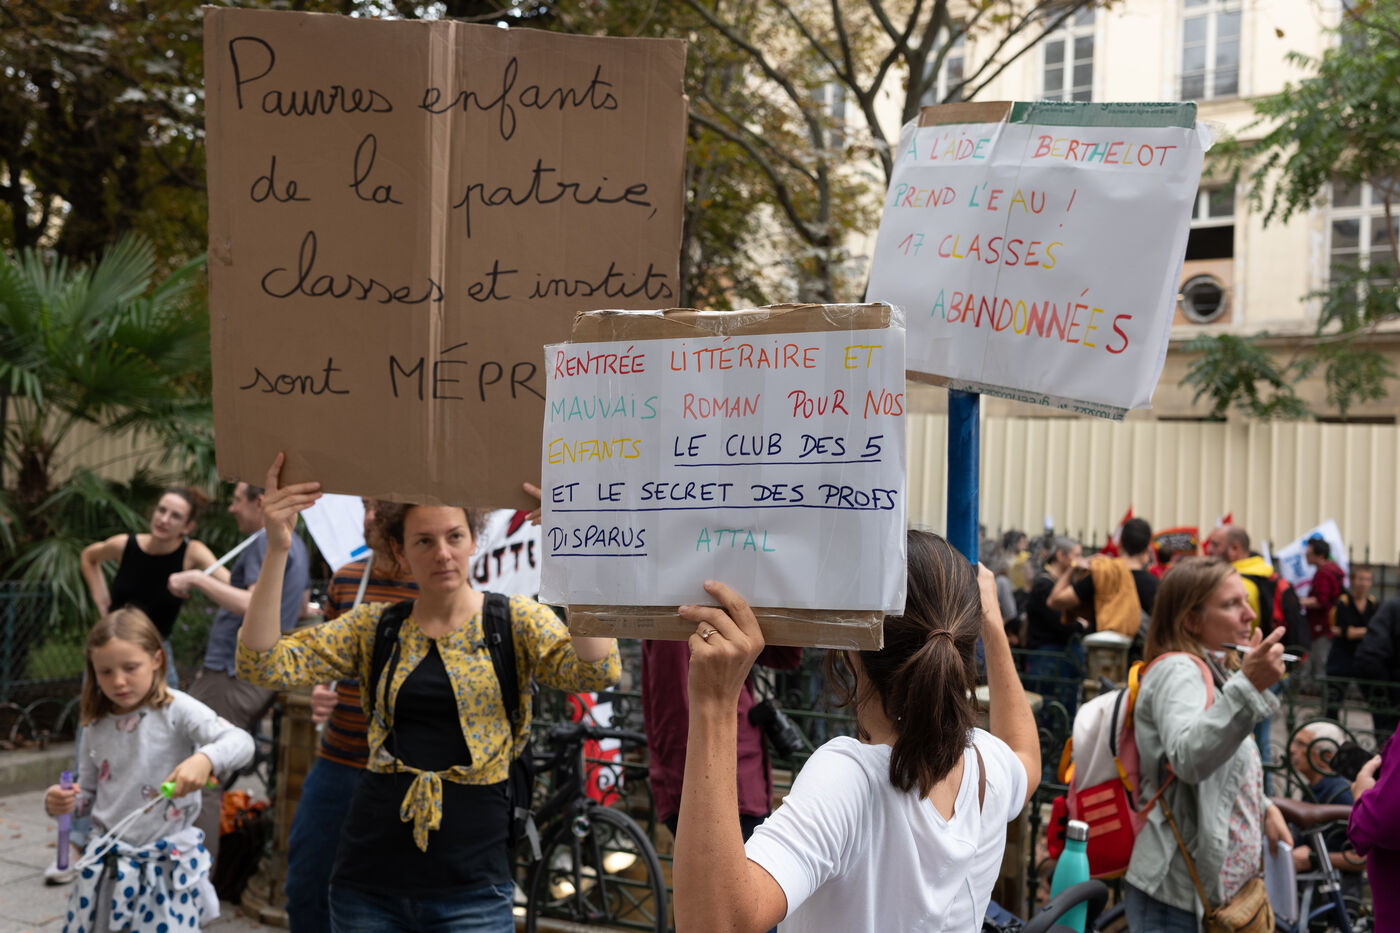 Pauvres enfants
de la patrie,
classes et instits
sont MÉPR
A L'AIDE BERTHELOT
PREND L'EAU !
17 CLASSES
ABANDONNÉES
RENTRÉE LITTÉRAIRE ET
MAUVAIS ROMAN POUR NOS
ENFANTS LE CLUB DES 5
ET LE SECRET DES PROFS
DISPARUS ATTAL
UTTE